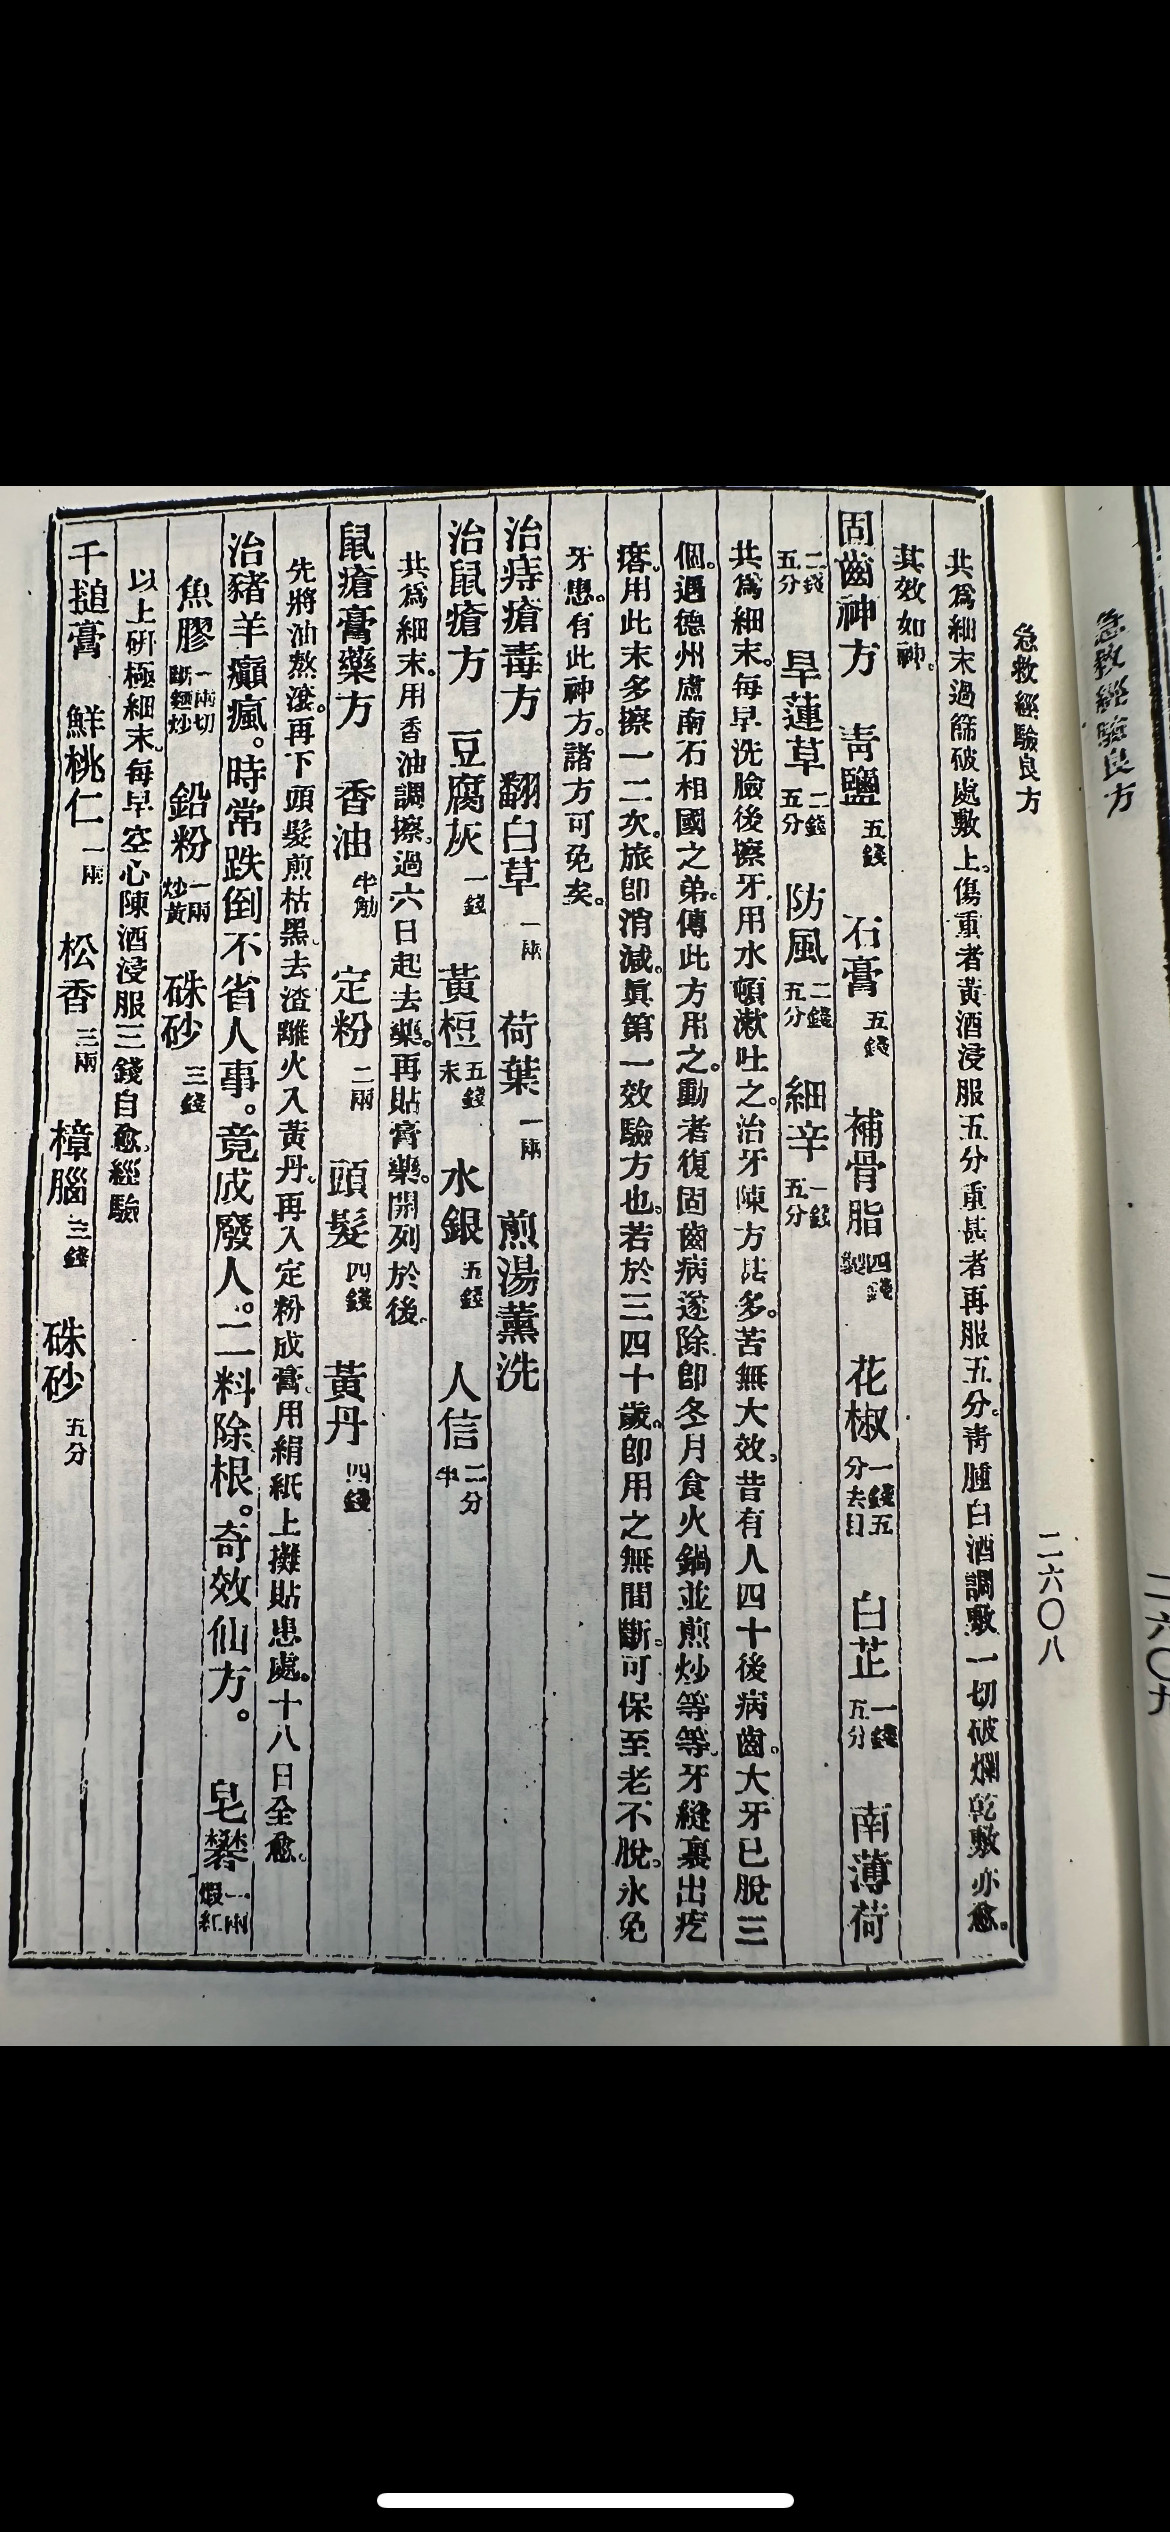 急救經驗良方
二六〇八
共爲細末過篩破處敷上。傷重者黃酒浸服五分重甚者再服五分。靑腫白酒調敷一切破爛乾敷亦愈。
其效如神。
固齒神方 靑鹽五錢 石膏五錢 補骨脂四錢 花椒一錢五分去目 白芷一錢五分 南薄荷
二錢五分 旱蓮草二錢五分 防風二錢五分 細辛一錢五分
共爲細末。每早洗臉後擦牙用水頓漱吐之。治牙陳方甚多。苦無大效。昔有人四十後病齒。大牙已脫三
個。遇德州盧南石相國之弟。傳此方用之。動者復固齒病遂除卽冬月食火鍋並煎炒等等。牙縫裏出疙
瘩。用此末多擦一二次。旅卽消減。眞第一效驗方也。若於三四十歲。卽用之無間斷。可保至老不脫。永免
牙患。有此神方。諸方可免矣。
治痔瘡毒方 翻白草一兩 荷葉一兩 煎湯薰洗
治鼠瘡方 豆腐灰一錢 黃梪五錢末 水銀五錢 人信二分半
共爲細末。用香油調擦。過六日起去藥。再貼膏藥。開列於後。
鼠瘡膏藥方 香油半觔 定粉二兩 頭髮四錢 黃丹四錢
先將油熬滾。再下頭髮煎枯黑。去渣離火入黃丹。再入定粉成膏。用絹紙上攤貼患處。十八日全愈。
治豬羊癲瘋。時常跌倒不省人事。竟成廢人。二料除根。奇效仙方。 皂礬一兩煅紅
魚膠一兩切斷麵炒 鉛粉一兩炒黃 硃砂三錢
以上硏極細末。每早空心陳酒浸服三錢自愈。經驗
千搥膏 鮮桃仁一兩 松香三兩 樟腦三錢 硃砂五分
急救經驗良方
二六〇九